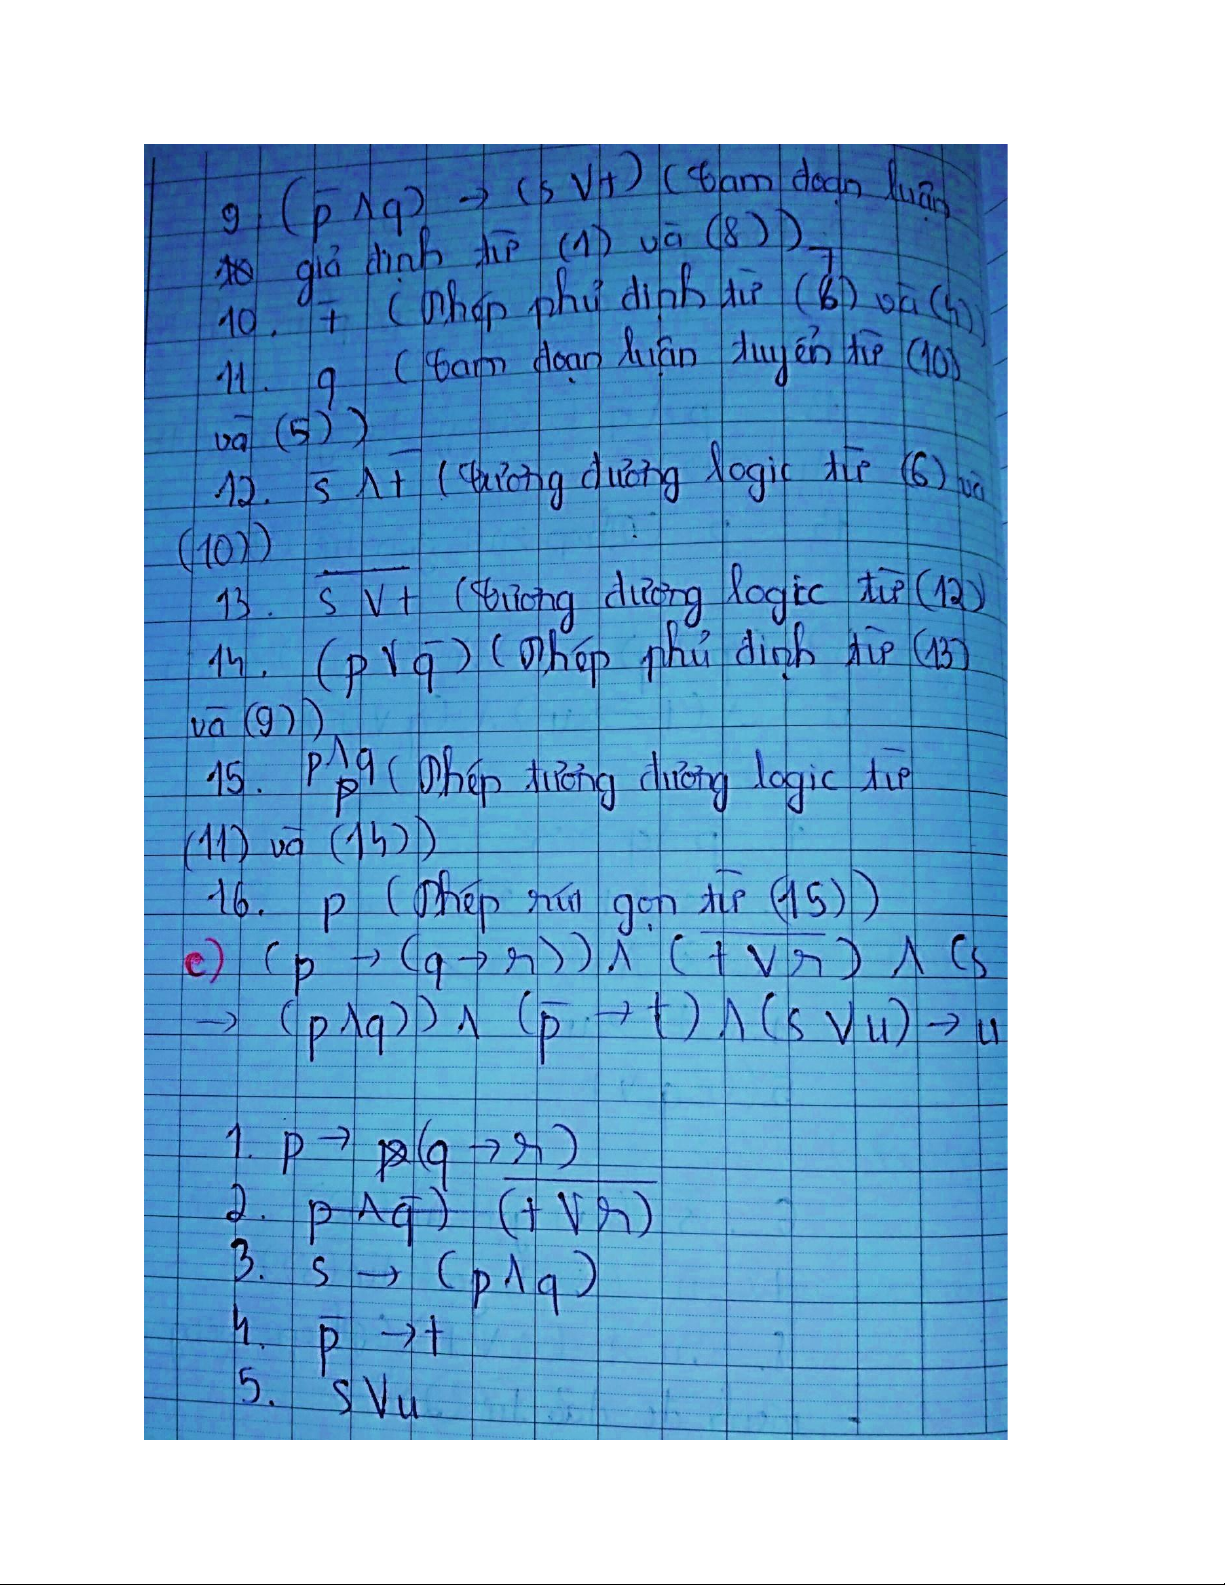 9. (p̅ ∧ q) → (s ∨ t) (Tam đoạn luận
giả định từ (1) và (8))
10. t̅ (Phép phủ định từ (6) và (4))
11. q (Tam đoạn luận tuyển từ (10)
và (5))
12. s̅ ∧ t̅ (Tương đương logic từ (6) và
(10))
13. \overline{s ∨ t} (Tương đương logic từ (12)
14. (p ∨ q̅) (Phép phủ định từ (13)
và (9))
15. p ∧ q (Phép tương đương logic từ
(11) và (14))
16. p (Phép rút gọn từ (15))
e) (p → (q → r)) ∧ (\overline{t ∨ r}) ∧ (s
→ (p ∧ q)) ∧ (p̅ → t) ∧ (s ∨ u) → u
1. p → (q → r)
2. (\overline{t ∨ r})
3. s → (p ∧ q)
4. p̅ → t
5. s ∨ u